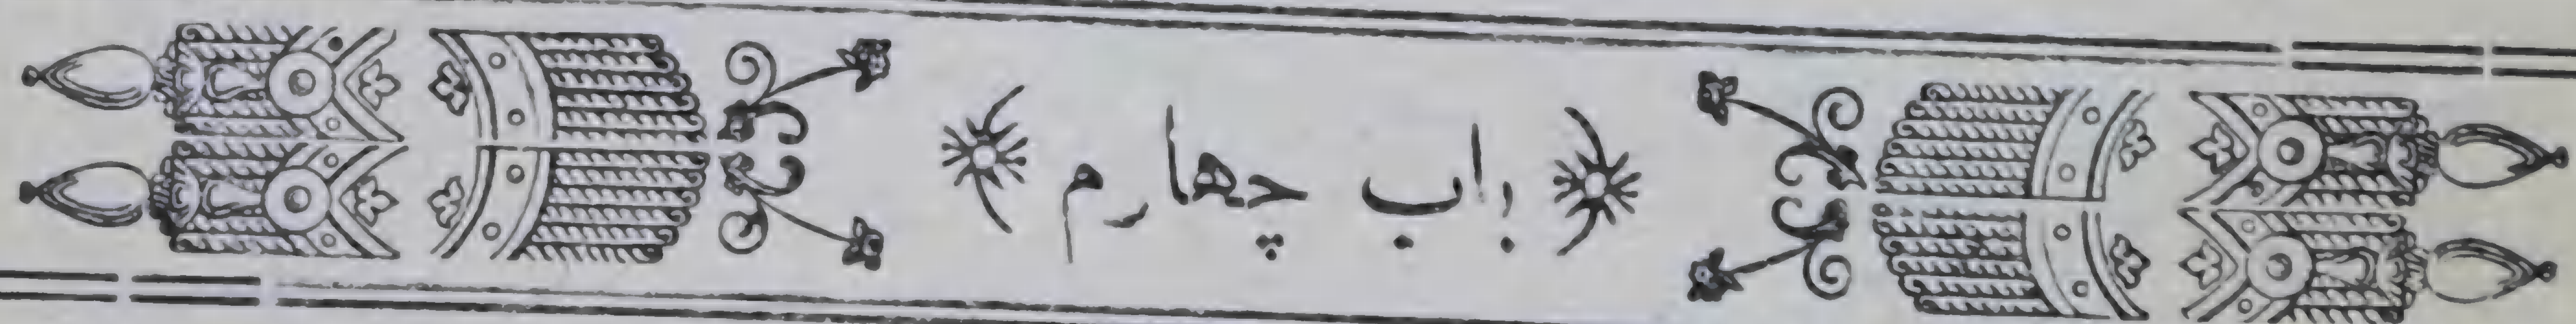 باب چهارم